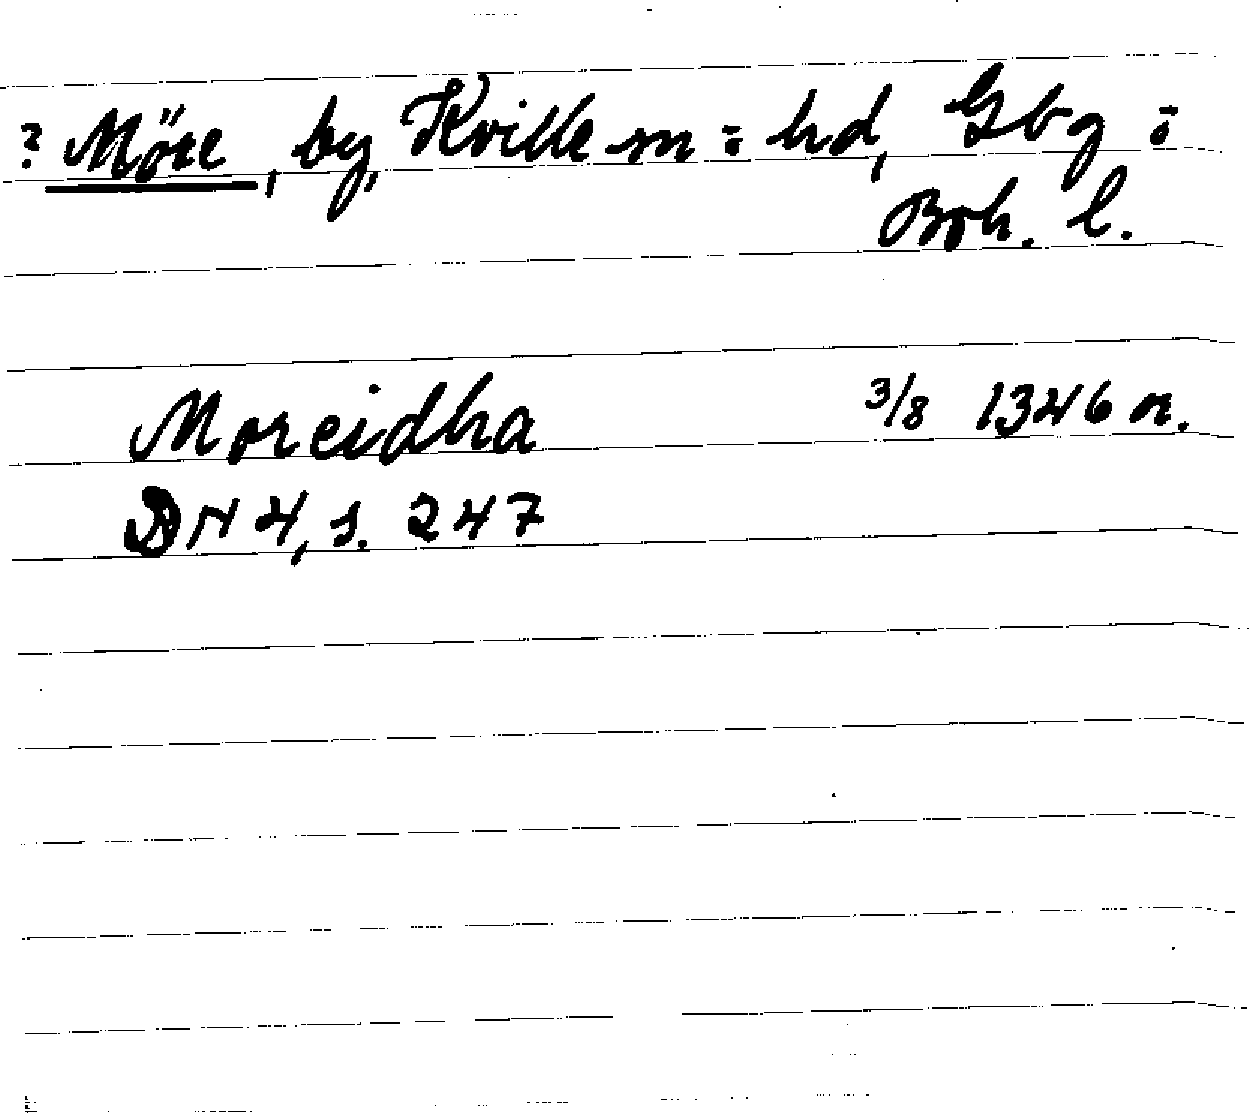 ? Möre, by, Kville sn = hd, Gbg o
Boh. l.
Moreidha 3/8 1346 or.
DN 4, s. 247